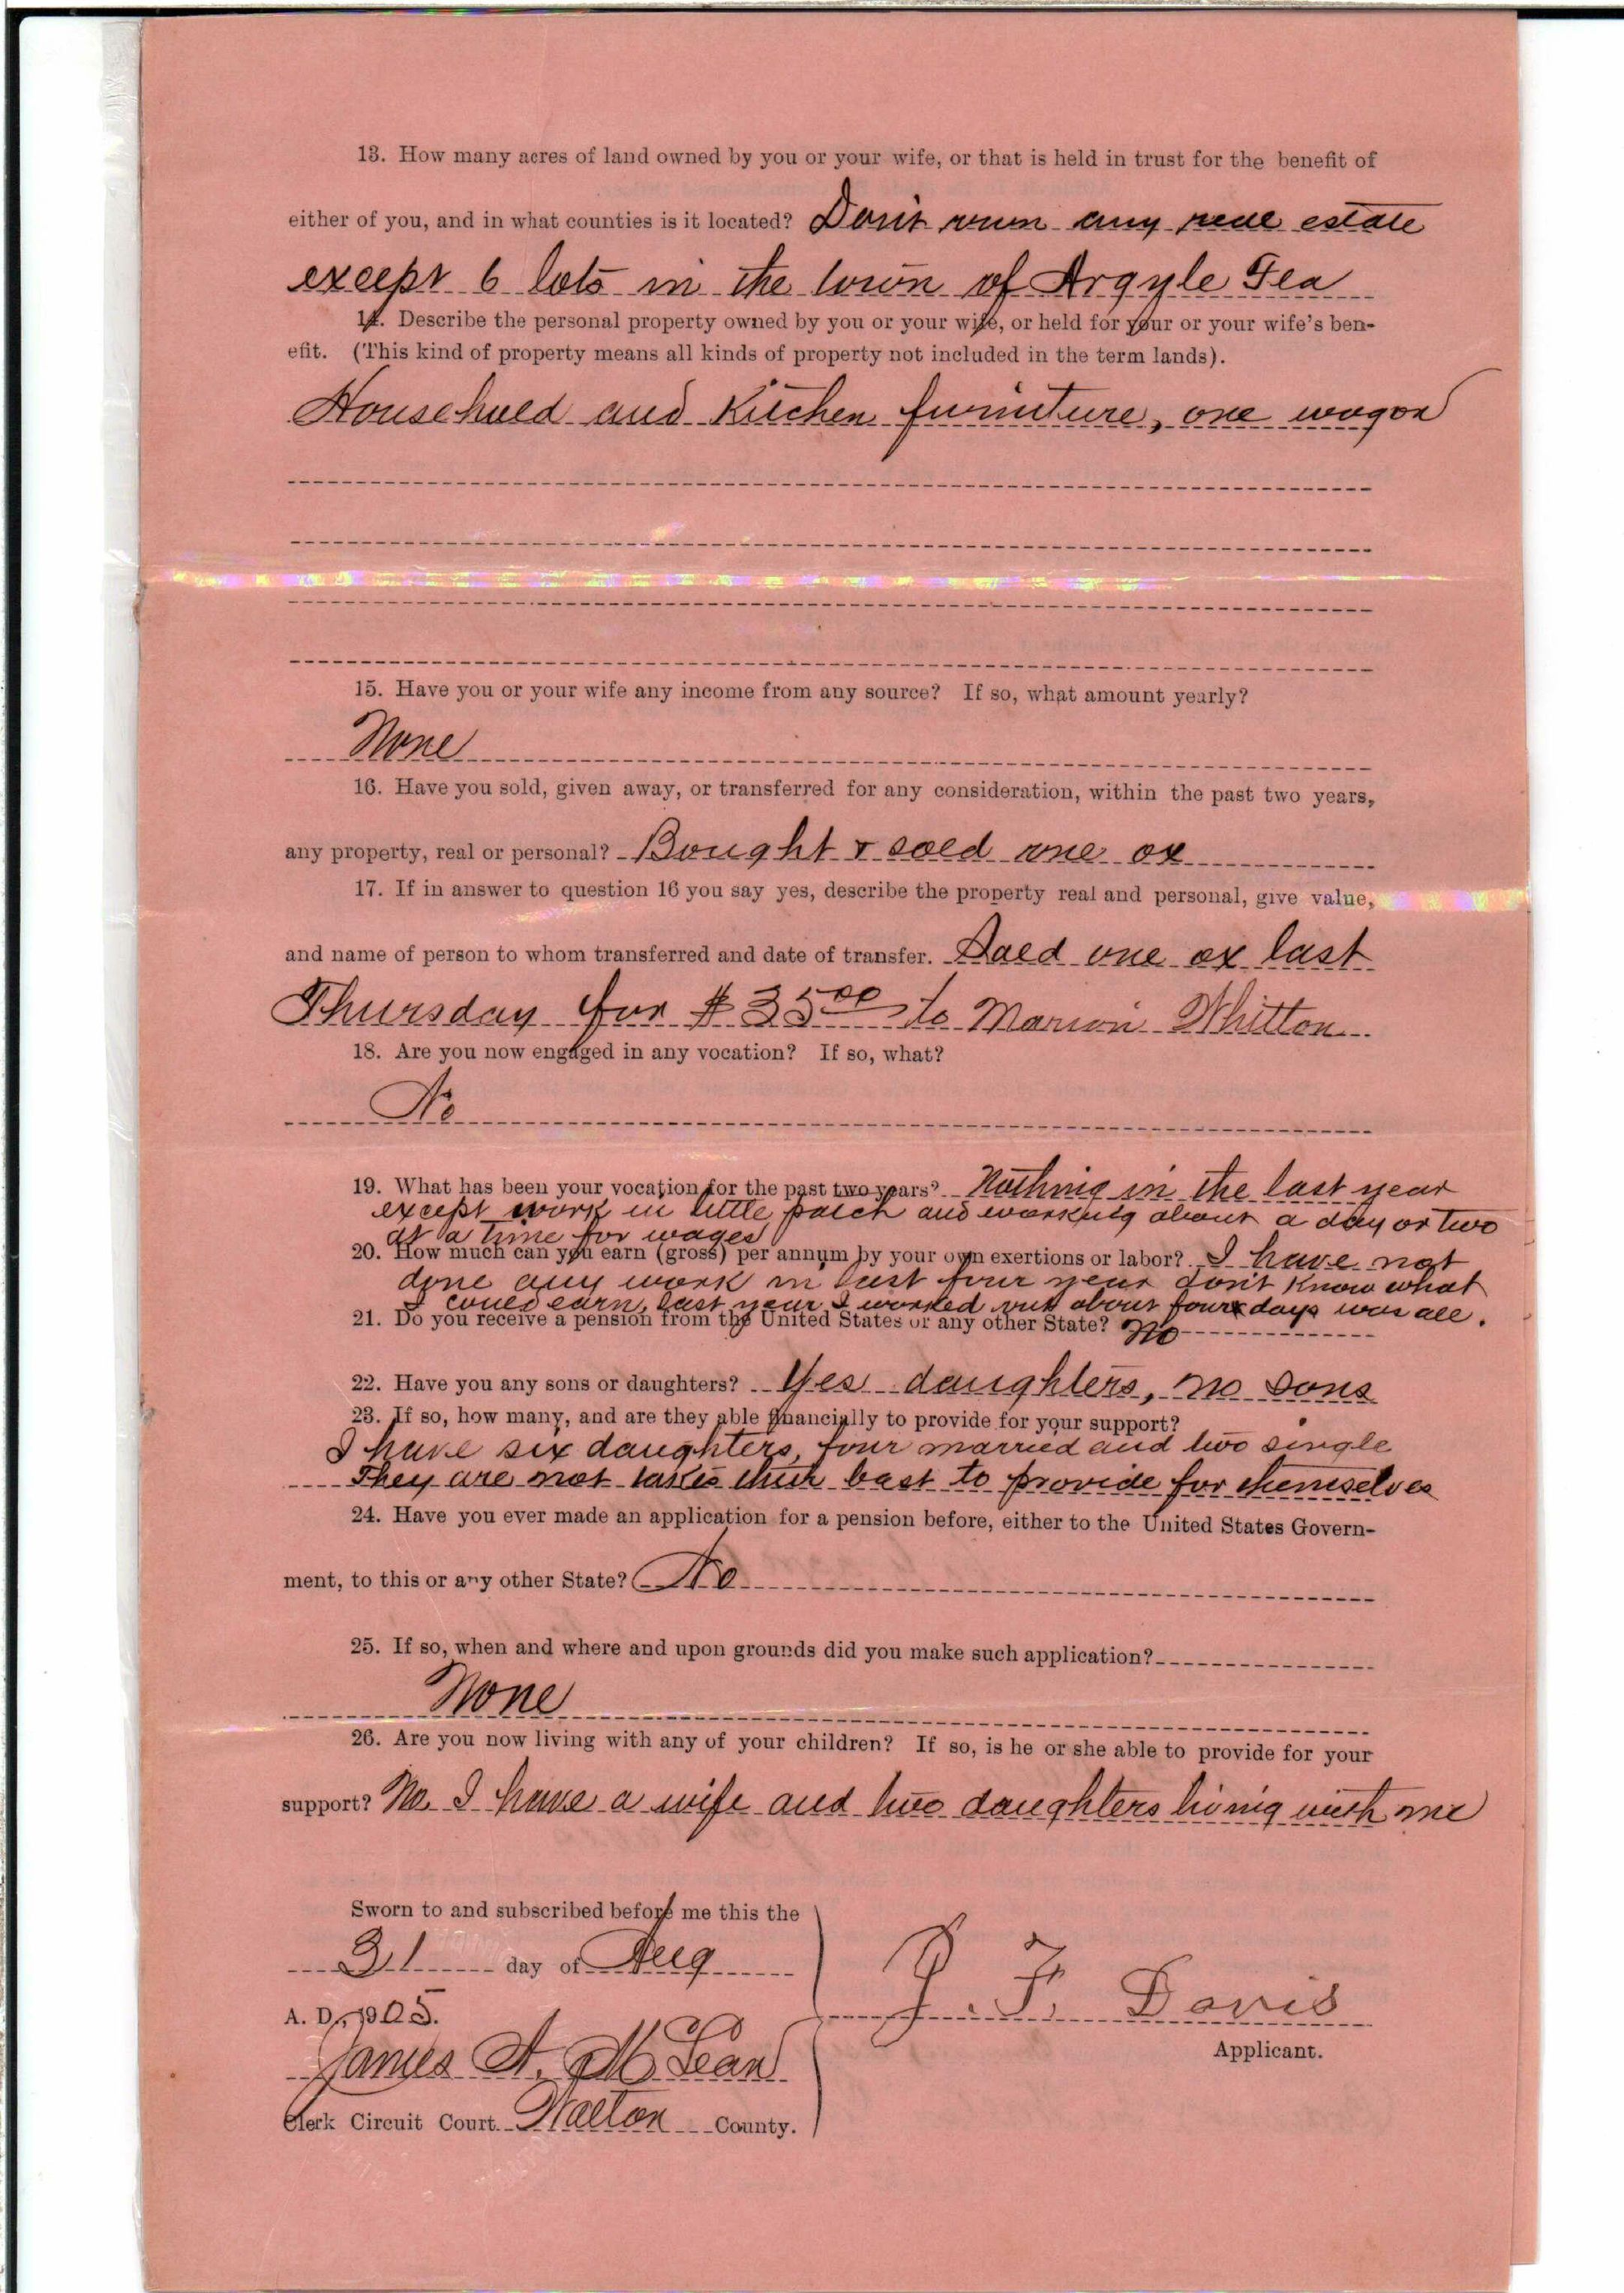 13. How many acres of land owned by you or your wife, or that is held in trust for the benefit of
either of you, and in what counties is it located? Don't own any real estate
except 6 lots in the town of Argyle Fla
14. Describe the personal property owned by you or your wife, or held for your or your wife's ben-
efit. (This kind of property means all kinds of property not included in the term lands).
Household and Kitchen furniture, one wagon
15. Have you or your wife any income from any source? If so, what amount yearly?
None
16. Have you sold, given away, or transferred for any consideration, within the past two years,
any property, real or personal? Bought & sold one ox
17. If in answer to question 16 you say yes, describe the property real and personal, give value,
and name of person to whom transferred and date of transfer. Sold one ox last
Thursday for $35.00 to Marion Whitton
18. Are you now engaged in any vocation? If so, what?
No
19. What has been your vocation for the past two years? Nothing in the last year
except work in little patch and working about a day or two
at a time for wages
20. How much can you earn (gross) per annum by your own exertions or labor? I have not
done any work in last four year don't know what
I could earn, last year I worked out about four days was all.
21. Do you receive a pension from the United States or any other State? No
22. Have you any sons or daughters? Yes daughters, no sons
23. If so, how many, and are they able financially to provide for your support?
I have six daughters, four married and two single
They are not takes their best to provide for themselves
24. Have you ever made an application for a pension before, either to the United States Govern-
ment, to this or any other State? No
25. If so, when and where and upon grounds did you make such application?
None
26. Are you now living with any of your children? If so, is he or she able to provide for your
support? No. I have a wife and two daughters living with me
Sworn to and subscribed before me this the
31 day of Aug
A. D., 1905.
J. F. Davis
Applicant.
James A. McLean
Clerk Circuit Court Walton County.